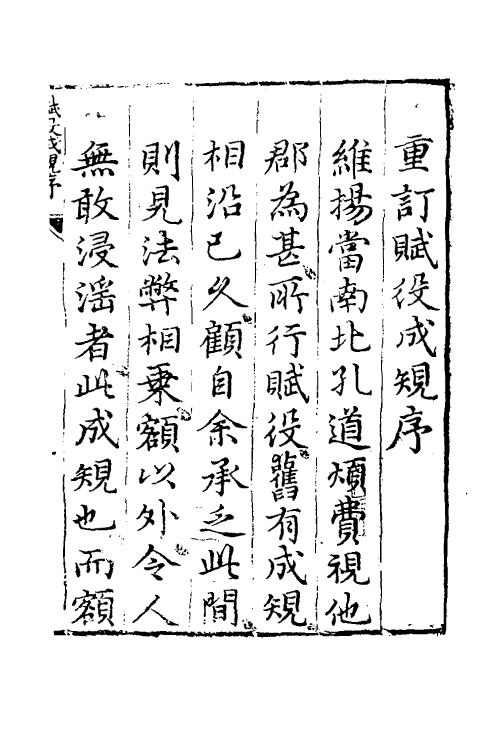 重訂賦役成規序
維揚當南北孔道煩費視他
郡為甚所行賦役舊有成規
相沿已久顧自余承乏此間
則見法弊相乗額以外令人
無敢浸滛者此成規也而額
賦役成規序